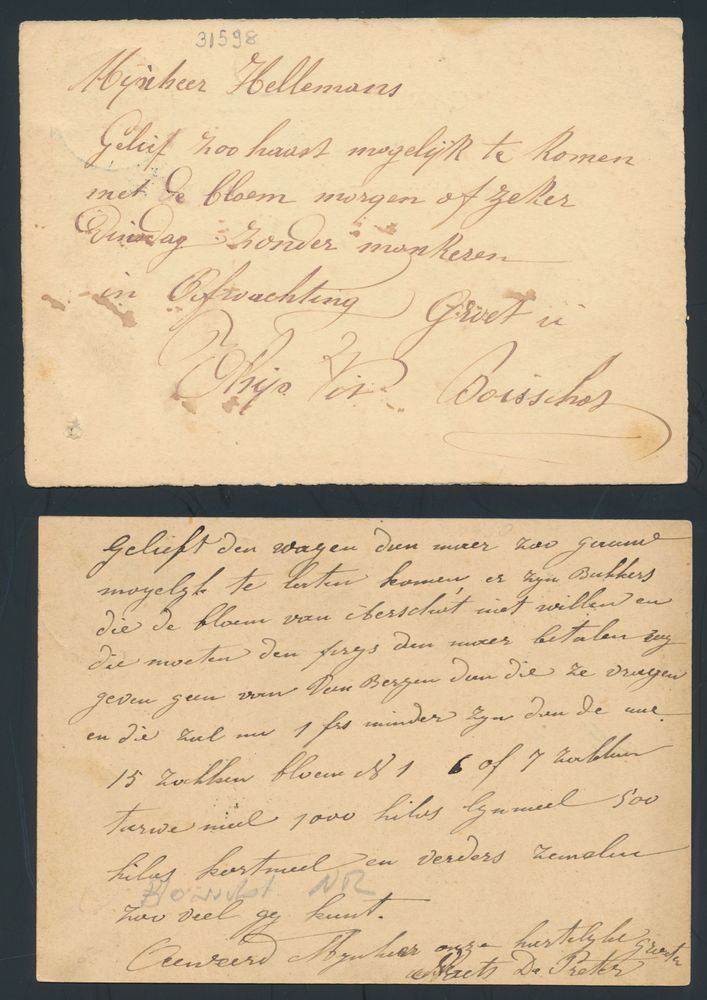 31598
Mijnheer Hellemans
Gelief zoo haast mogelijk te komen
met de bloem morgen of zeker
Dinsdag zonder mankeren
in Afwachting Groet u
Thijs Boisschot
Gelieft den wagen dan maer zoo gauw
mogelyk te laten komen, er zyn Bakkers
die de bloem van Aerschot niet willen en
die moeten den prys dan maer betalen wy
geven geen van Van Bergen dan die ze vragen
en die zal nu 1 frs minder zyn dan de uwe
15 zakken bloem N 1 6 of 7 zakken
tarwe meel 1000 kilos lynmeel 500
kilos kortmeel en verders zemelen
Boisschot NR
zoo veel gy kunt.
Aenveerd Mynheer onze hartelyke Groeten
Aerts De Preter